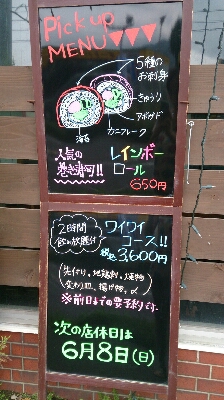 Pick up
MENU
5種の
お刺身
きゅうり
アボカド
カニフレーク
海苔
人気の
巻き寿司!!
レインボー
ロール
650円
2時間
飲み放題付
ワイワイ
コース!!
税込 3,600円
先付け、地鶏刺、焼物
変わり皿、揚げ物、〆
※前日までの要予約です。
次の店休日は
6月8日(日)